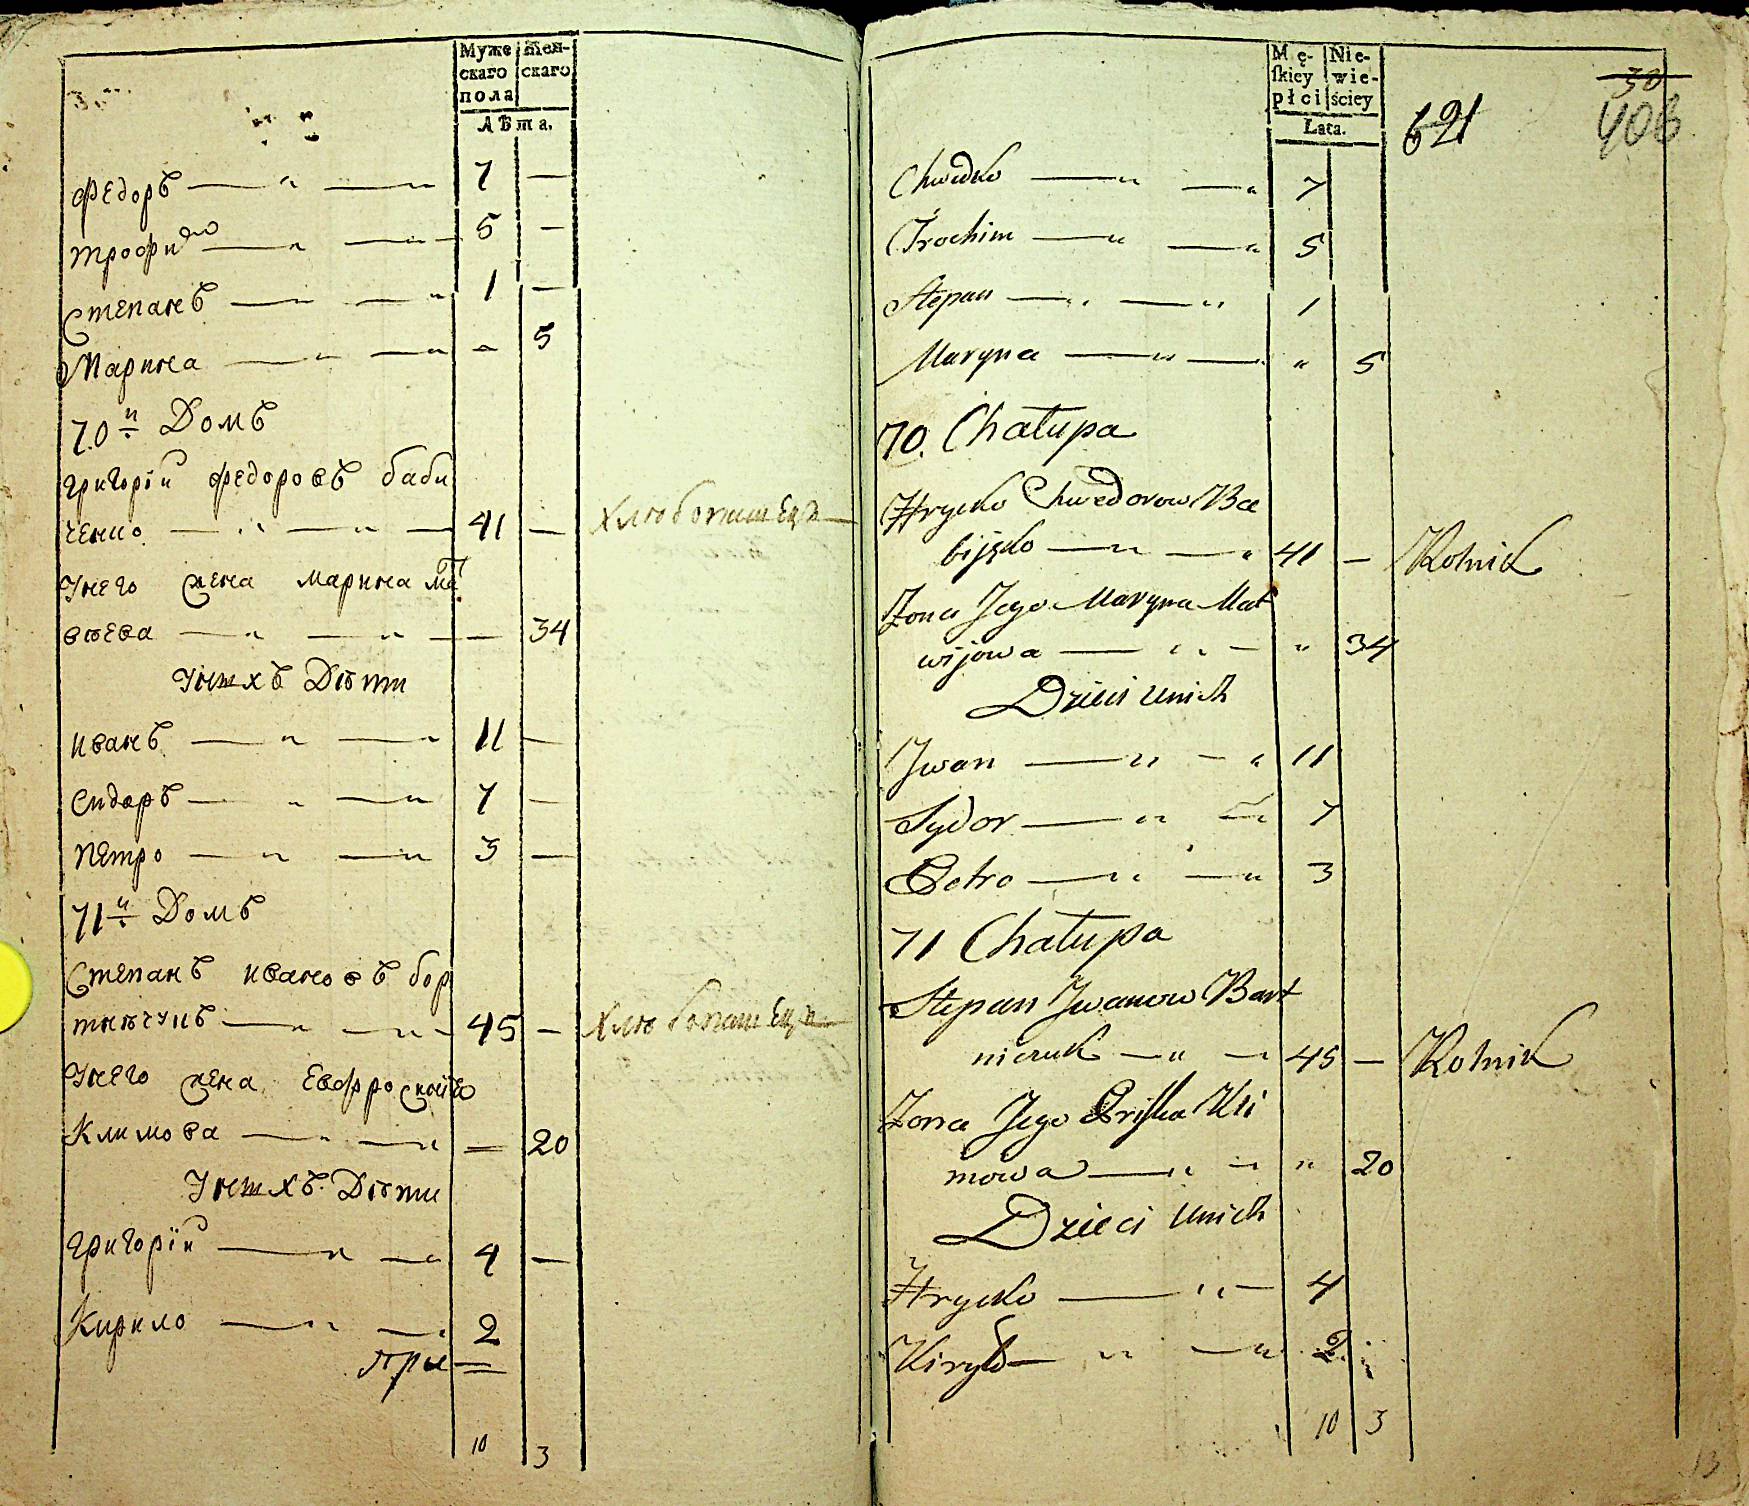 Муже скаго пола
Жен- скаго
Лѣта.
Федоръ — „ — „ 7 —
трофим — „ — „ 5 —
Степанъ — „ — „ 1 —
Марина — „ — „ 5
70й Домъ
григорій федоровъ баби
ченко — „ — „ — 41 — Хлѣбопашецъ
Унего жена марина мат
вѣева — „ — „ — 34
Унихъ Дѣти
иванъ — „ — „ 11 —
Сидоръ — „ — „ 7 —
петро — „ — „ 3 —
71й Домъ
Степанъ ивановъ бор
тничукъ — „ — „ 45 — Хлѣбопашецъ
Унего жена Евфросинія
Климова — „ — „ = 20
Унихъ Дѣти
григорій — „ — „ 4 —
Кирило — „ — „ 2
при =
10 3
Mę- skiey płci
Nie- wie- ściey
Lata.
621
38
408
Chwedko — „ — „ 7
Trochim — „ — „ 5
Stepan — „ — „ 1
Maryna — „ — „ 5
70. Chałupa
Hrycko Chwedorow Ba
bijczko — „ — „ 41 — Rolnik
Zona Jego Maryna Mat
wijowa — „ — „ 34
Dzieci unich
Jwan — „ — „ 11
Sydor — „ — 7
Petro — „ — „ 3
71 Chałupa
Stepan Jwanow Bart
niczuk — „ — 45 — Rolnik
Zona Jego Priska Kli
mowa — „ — „ 20
Dzieci unich
Hrycko — „ — 4
Kiryło — „ — „ 2
10 3
13